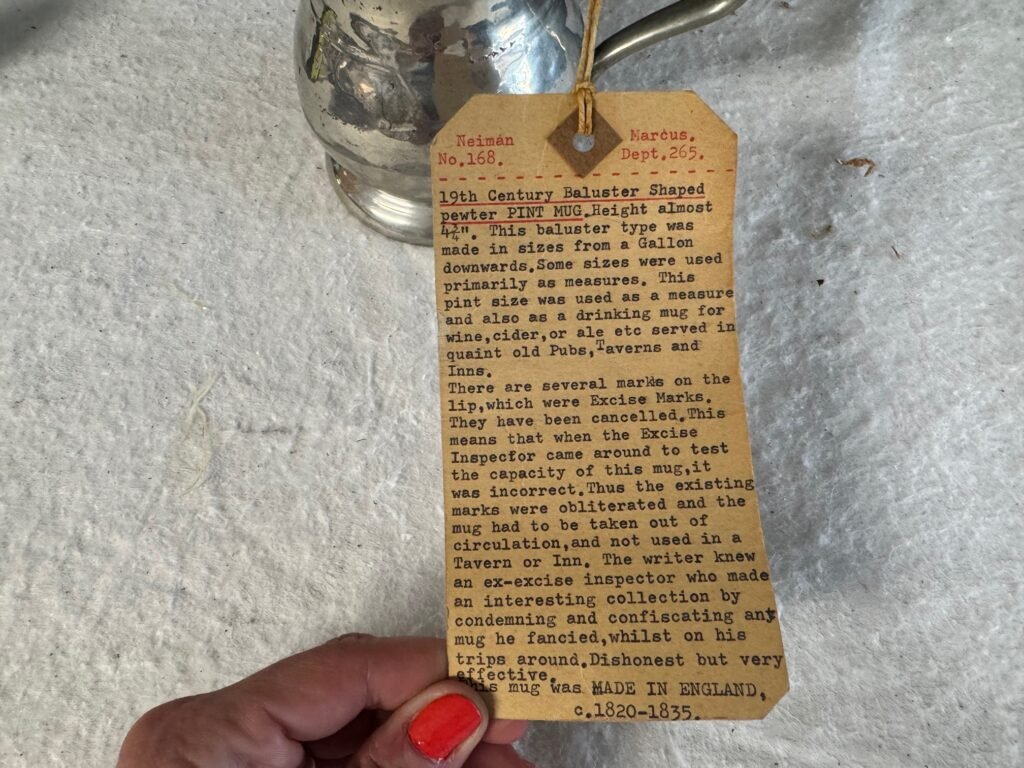 Neiman Marcus.
No.168. Dept.265.
19th Century Baluster Shaped
pewter PINT MUG.Height almost
4¾". This baluster type was
made in sizes from a Gallon
downwards.Some sizes were used
primarily as measures. This
pint size was used as a measure
and also as a drinking mug for
wine,cider,or ale etc served in
quaint old Pubs,Taverns and
Inns.
There are several marks on the
lip,which were Excise Marks.
They have been cancelled.This
means that when the Excise
Inspector came around to test
the capacity of this mug,it
was incorrect.Thus the existing
marks were obliterated and the
mug had to be taken out of
circulation,and not used in a
Tavern or Inn. The writer knew
an ex-excise inspector who made
an interesting collection by
condemning and confiscating any
mug he fancied,whilst on his
trips around.Dishonest but very
effective.
This mug was MADE IN ENGLAND,
c.1820-1835.